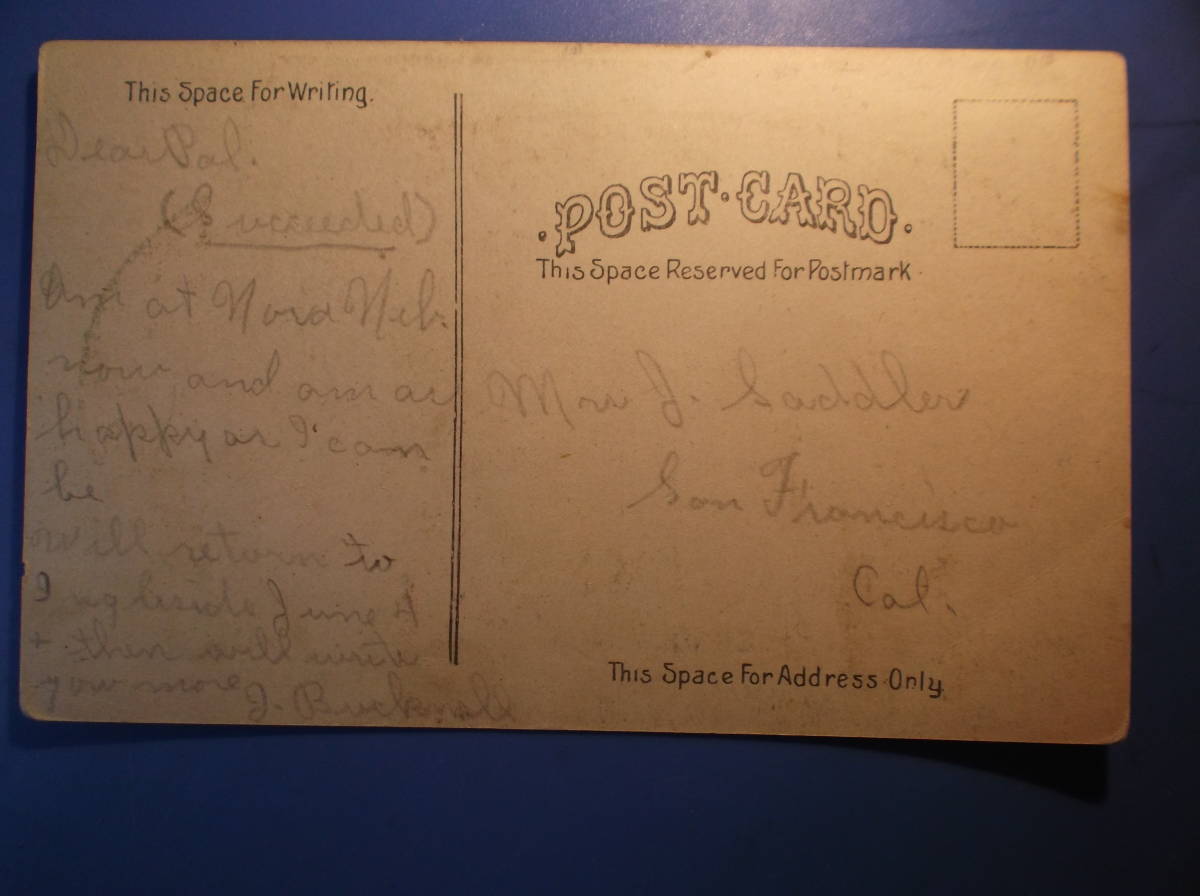 This Space For Writing.
Dear Pal.
(Succeeded)
Am at Nora Neb.
now and am as
happy as I can
be
will return to
Ingleside June 4
+ then will write
you more
J. Bucknall
POST CARD.
This Space Reserved For Postmark
Mrs J. Saddler
San Francisco
Cal.
This Space For Address Only.